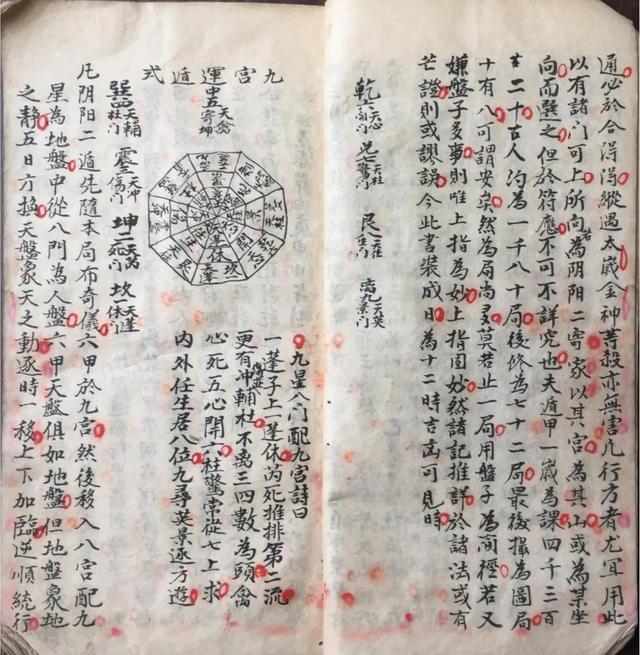 通必於合得得縱遇太歲金神等殺亦無害凢行方者尤宜用此
以有諸门可上所向若為阴阳二寄家以其宮為其山或為某坐
向而選之但於符應不可不詳究也夫遁甲一歲為課四千三百
二十古人沟為一千八十局後修為七十二局最後撮為圖局
十有八可謂安矣然為局尚多莫若止一局用盤子為间徑若又
嫌盤子多事則唯上指為妙上指固妙然諸記推詳於諸法或有
芒證則或謬误今此書裝成日為十二時吉凶可見時
乾六開门天心 兑七驚门天柱 艮八生门天任 離九景门天英
九宮運遁式
中五寄坤天禽
巽四杜门天輔 震三傷门天冲 坤二死门天芮 坎一休门天蓬
九星八门配九宮詩曰
一蓬子上一蓬休芮死推排第二流
更有冲傷並輔杜不离三四數為頭禽
心死五心開六柱驚常從七上求
内外任生居八位九尋英景逐方遊
凢阴阳二遁先隨本局布奇儀六甲於九宮然後移入八宮配九
星為地盤中從八門為人盤六甲天盤俱如地盤但地盤象地
之静五日方換天盤象天之動逐時一移上下加臨逆順統行